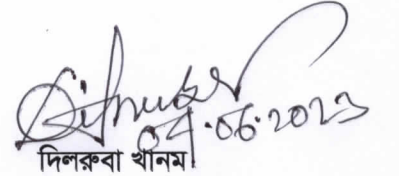 04.06.2023
দিলরুবা খানম